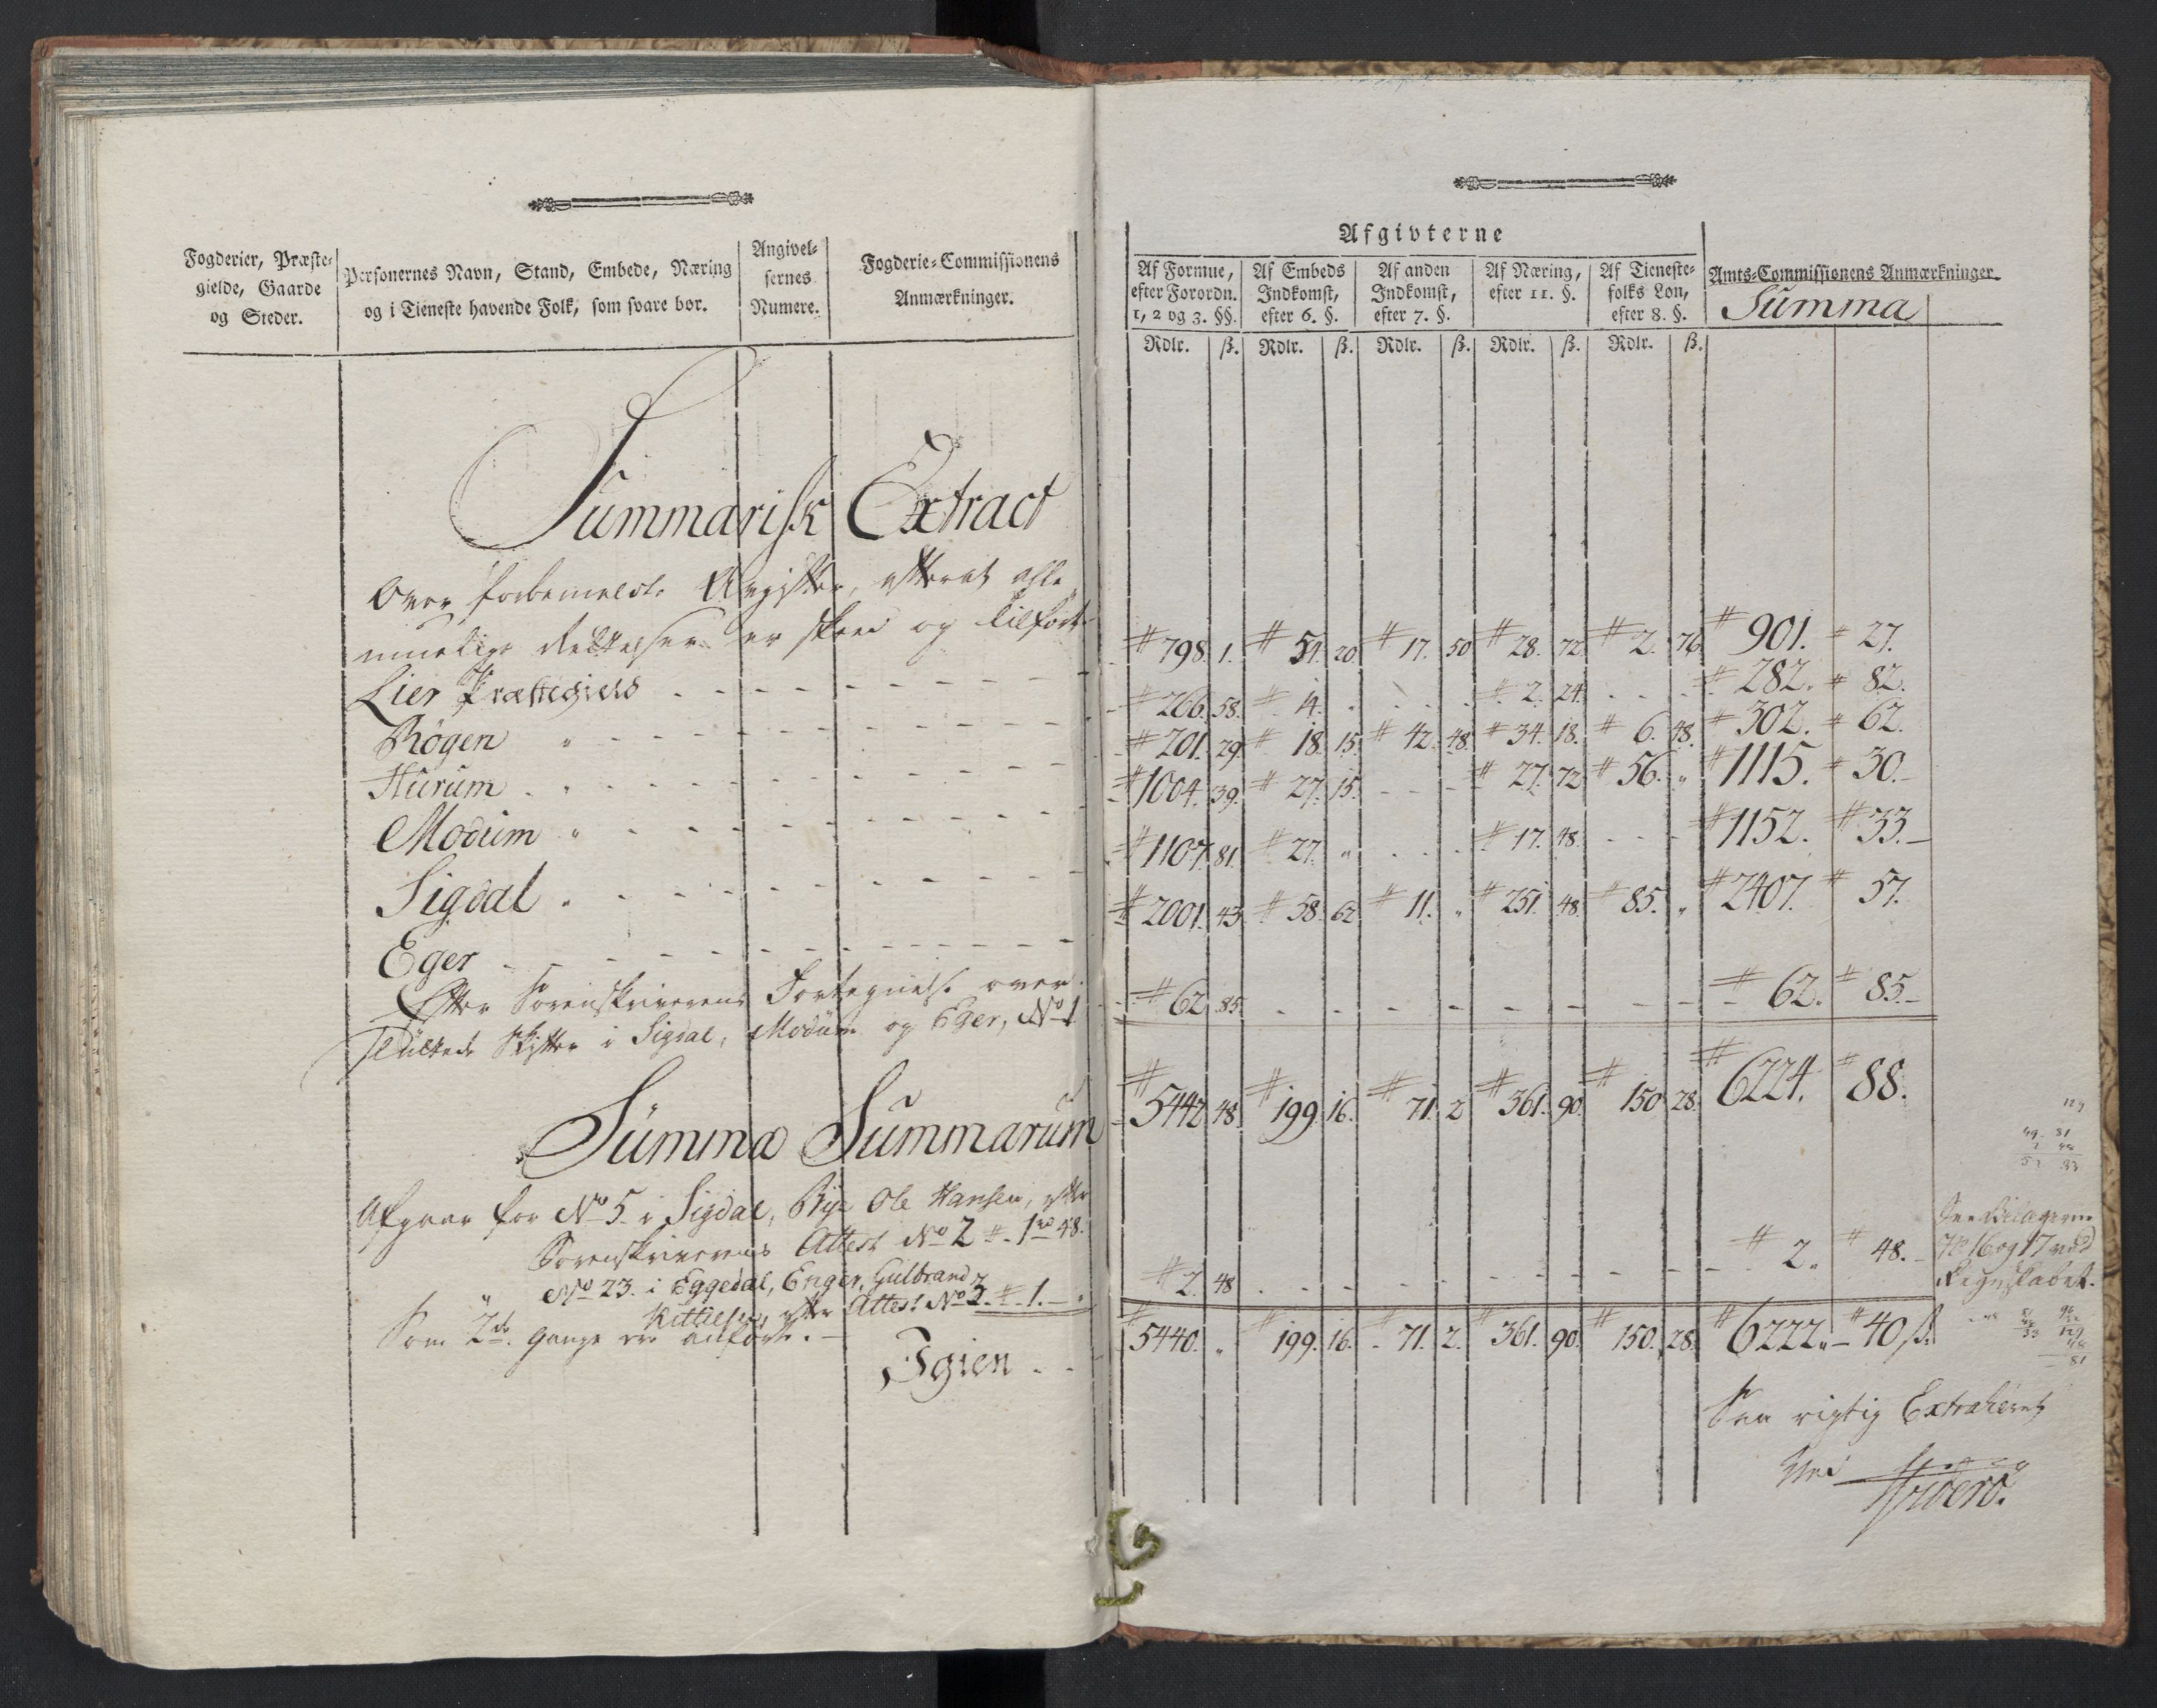 Fogderier, Præste-
gielde, Gaarde
og Steder.
Personernes Navn, Stand, Embede, Næring
og i Tieneste havende Folk, som svare bør.
Angivel-
sernes
Numere.
Fogderie-Commissionens
Anmærkninger.
Summarisk Extract
Over forbemeldte Register, efterat alle
muelige Rettelser er skeed og tilført
Lier Præstegield
Røgen "
Hurum "
Modum "
Sigdal
Eger
Efter Sorenskriverens Fortegnelse over
Sluttede Skifter i Sigdal, Modum og Eger, No 1
Summa Summarum
Afgaar for No 5 i Sigdal, Ole Hansen, efter
Sorenskriverens Attest No 2 # 1rd 48.
" No 23. i Eggedal, Enger, Gulbrand
Kittilsen, efter Attest No 3. # 1. –
Som 2de Gange ere anført. –
Igien
Afgivterne
Af Formue,
efter Forordn.
1, 2 og 3. §§.
Af Embeds
Indkomst,
efter 6. §.
Af anden
Indkomst,
efter 7. §.
Af Næring,
efter 11. §.
Af Tieneste-
folks Løn,
efter 8. §.
Amts-Commissionens Anmærkninger.
Summa
Rdlr. ß. Rdlr. ß. Rdlr. ß. Rdlr. ß. Rdlr. ß.
# 798. 1. # 54. 20. # 17. 50 # 28. 72 # 2. 76 # 901. # 27.
# 266. 58. # 14. # 2. 24. # 282. # 82.
# 201. 29. # 18. 15. # 42. 48. # 34. 18. # 6. 48. # 302. # 62.
# 1004. 39. # 27. 15. # 27. 72 # 56. " # 1115. # 30.
# 1107. 81. # 27. " # 17. 48. # 1152. # 33.
# 2001. 43. # 58. 62 # 11. " # 251. 48. # 85. " # 2407. # 57.
# 62. 85. # 62. # 85.
# 5442 48 # 199. 16. # 71. 2 # 361. 90. # 150 28. # 6224. # 88.
# 2. 48 # 2. # 48.
See Bilagerne
No 16 og 17 ved
Regnskabet.
# 5440. " # 199. 16. 71. 2. # 361. 90. # 150. 28. # 6222. # 40 ß.
Saa rigtig Extraheret